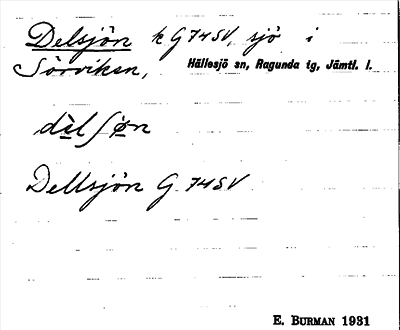 Delsjön k G 74 SV, sjö i
Sörviken, Hällesjö sn, Ragunda tg, Jämtl. l.
dèlʃø̀n
Dellsjön G. 74 SV
E. BURMAN 1931